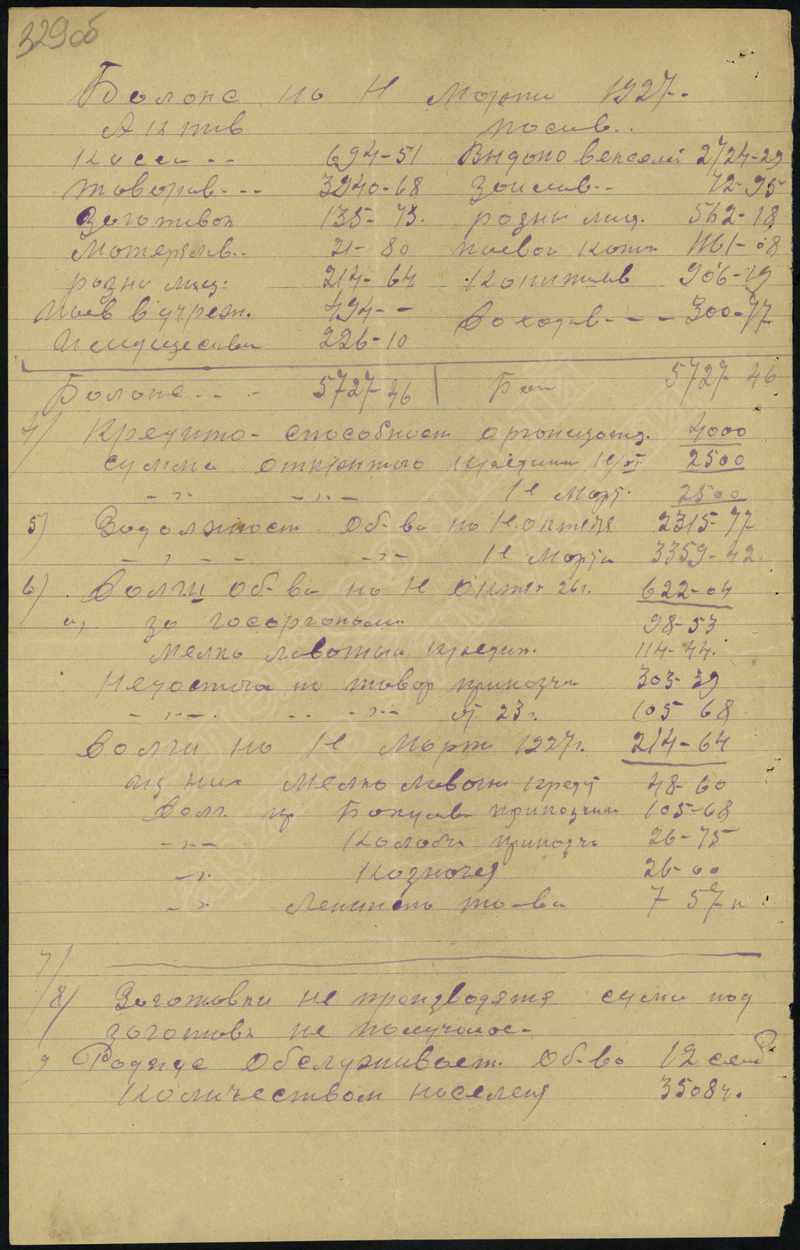 329 об
Баланс на 1 Марта 1927..
Актив пасив..
Касса -- 694-51 Выдано векселей 2724-29
товаров--- 3940-68 72-95
Заготовок 135-73. разны лиц. 562-18
Матерялов.. 21-80 паевой 1161-08
разны лиц: 214-64 Капиталов 906-19
Паев в учреж. 494-- Доходов--- 300-77
Имущества 226-10
Баланс--- 5727-46 Бал 5727-46
4) Кредито-способност организации. 4000
сумма открытого кредита 1/XI 2500
-"- -"- 1 Март. 2500
5) Задолжност Об-ва на 1 октября 2315-77
-"- - -"- 1 Марта 3359-42
6) Долги об-ва на 1 октяб 26 г. 622-04
а, за госорганами 98-53
Мелко лавочный кредит. 114-44.
Недостача по товар приказчи 303-39
-"-. .. -"- от 23 г. 105 68
Долги на 1 Март 1927 г. 214-64
из них Мелко лавочн кредт 48-60
Долг пр приказчика 105-68
-"- приказчи 26-75
-"- Казначея 26-00
-"- то-ва 7 57 к:
7)
8) Заготовки не производятся сумм под
заготовк не получалос-
9 Радиус обслуживает. Об-во 12 сел
Количеством населеия 3508 ч.